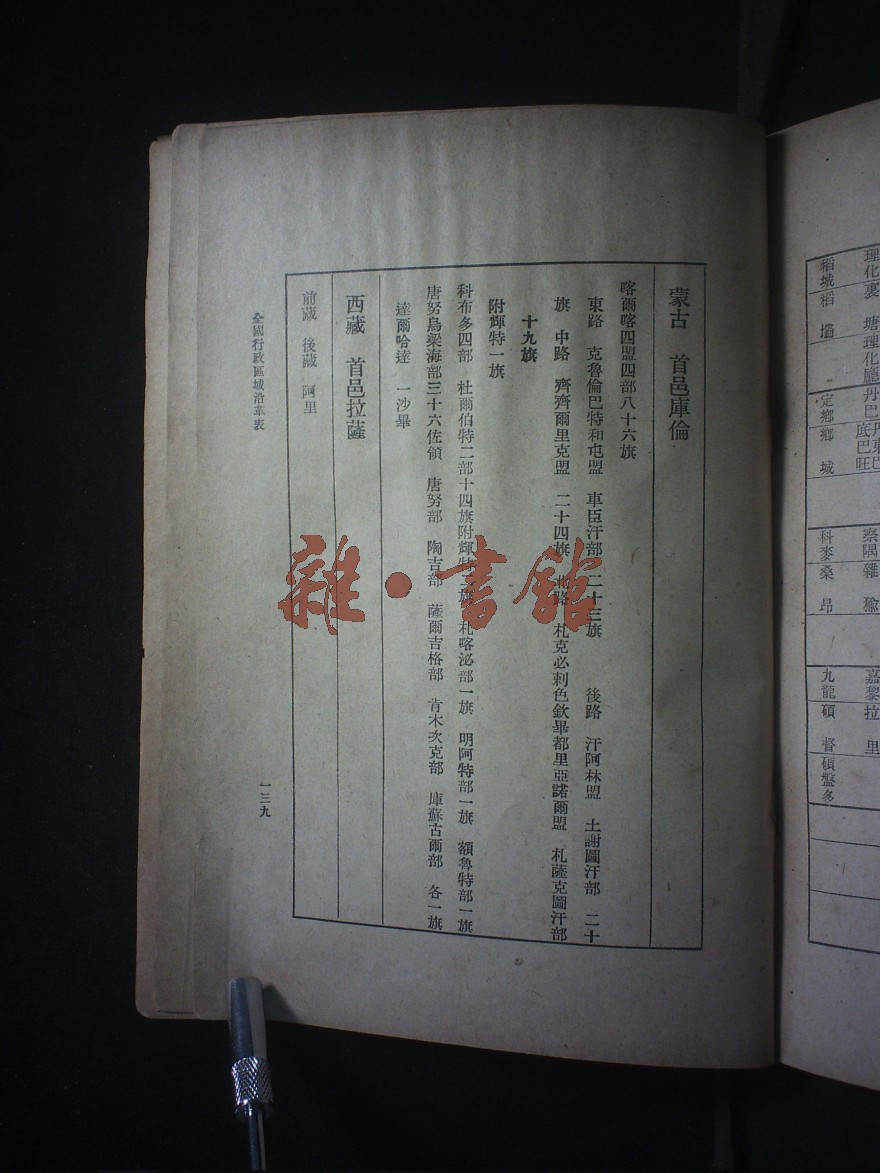 蒙古　首邑庫倫
喀爾喀四盟四部八十六旗
東路　克魯倫巴特和屯盟　車臣汗部　二十三旗　後路　汗阿林盟　土謝圖汗部　二十
旗　中路　齊齊爾里克盟　二十四旗　北路　札克必剌色欽畢都里亞諾爾盟　札薩克圖汗部
十九旗
附輝特一旗
科布多四部　杜爾伯特二部十四旗附輝特二旗　札喀泌部一旗　明阿特部一旗　額魯特部一旗
唐努烏梁海部三十六佐領　唐努部　陶吉部　薩爾吉格部　肯木次克部　庫蘇古爾部　各一旗
達爾哈達　一沙畢
西藏　首邑拉薩
前藏　後藏　阿里
全國行政區域沿革表
一三九
雜·書館
理化裏　塘理化廳
稻城稻　壩
丹巴
定鄉鄉　城
察隅雜　㺄
科麥桑　昂
嘉黎拉　里
九龍碩　督碩盤多